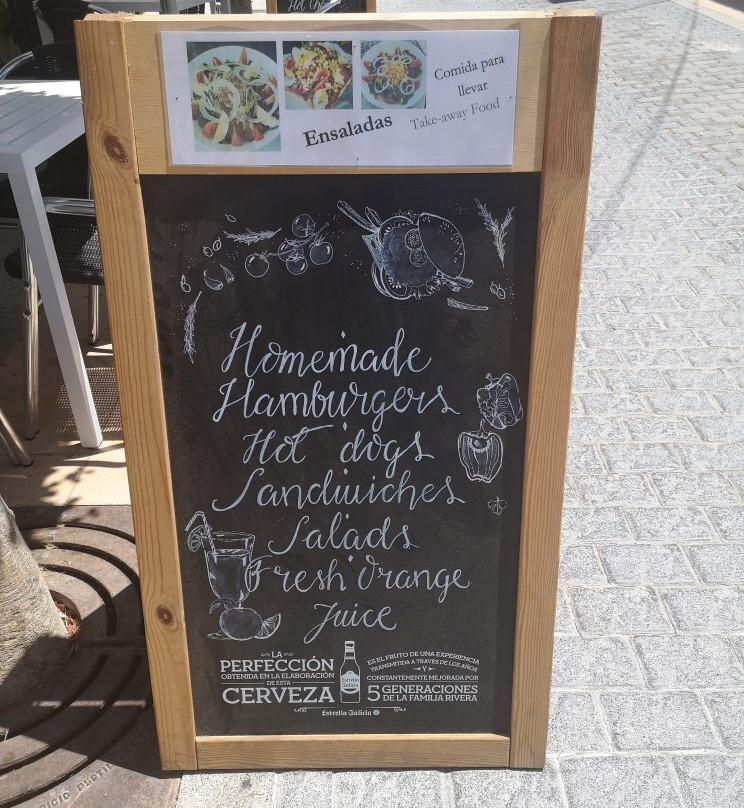 Hot Cho
Comida para
llevar
Ensaladas
Take-away Food
Homemade
Hamburgers
Hot dogs
Sandwiches
Salads
Fresh Orange
Juice
LA
PERFECCIÓN
OBTENIDA EN LA ELABORACIÓN
DE ESTA
CERVEZA
Estrella
Galicia
ES EL FRUTO DE UNA EXPERIENCIA
TRANSMITIDA A TRAVÉS DE LOS AÑOS
Y
CONSTANTEMENTE MEJORADA POR
5 GENERACIONES
DE LA FAMILIA RIVERA
Estrella Galicia